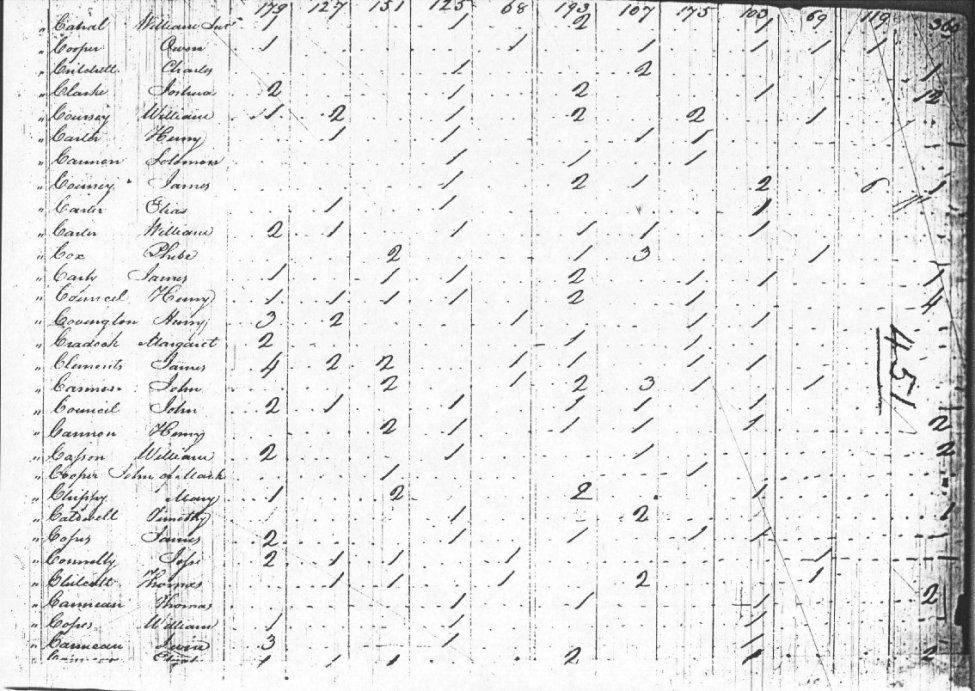 179 127 151 125 68 193 107 175 103 69 119 360
" Cahal William Junr 1 1 2 1
" Cooper Owen 1 1 1 1 1 1
" Chilcutt Charles 1 2 1
" Clarke Joshua 2 1 2 1 12
" Coursey William 1 2 1 2 2 1
" Carter Henry 1 1 1 1
" Cannon Solomon 1 1 1
" Coursey James 1 2 1 2 6 1
" Carter Elias 1 1 1
" Carter William 2 1 1 1 1 1
" Cox Phebe 2 1 3 1
" James 1 1 1 2 1 1
" Council Henry 1 1 1 1 2 1 4
" Covington Henry 3 2 1 1 1
" Cradock Margaret 2 1 1
" Clements James 4 2 2 1 1 1 1
" John 2 1 2 3 1 1
451
" Council John 2 1 1 1 1 1
" Cannon Henry 2 1 1 1 1 2
" Casson William 2 1 1 2
" Cooper John of Mark 1 1
" Mary 1 2 2 1
" Caldwell Timothy 1 2 1
" Copes James 2 1 1 1 1 1
" Connolly 2 1 1 1 1
" Chilcutt Thomas 1 1 1 2 1 2
" Thomas 1 1 1
" Copes William 1 1 1
" 3 1 1
" 1 1 1 2 1 2